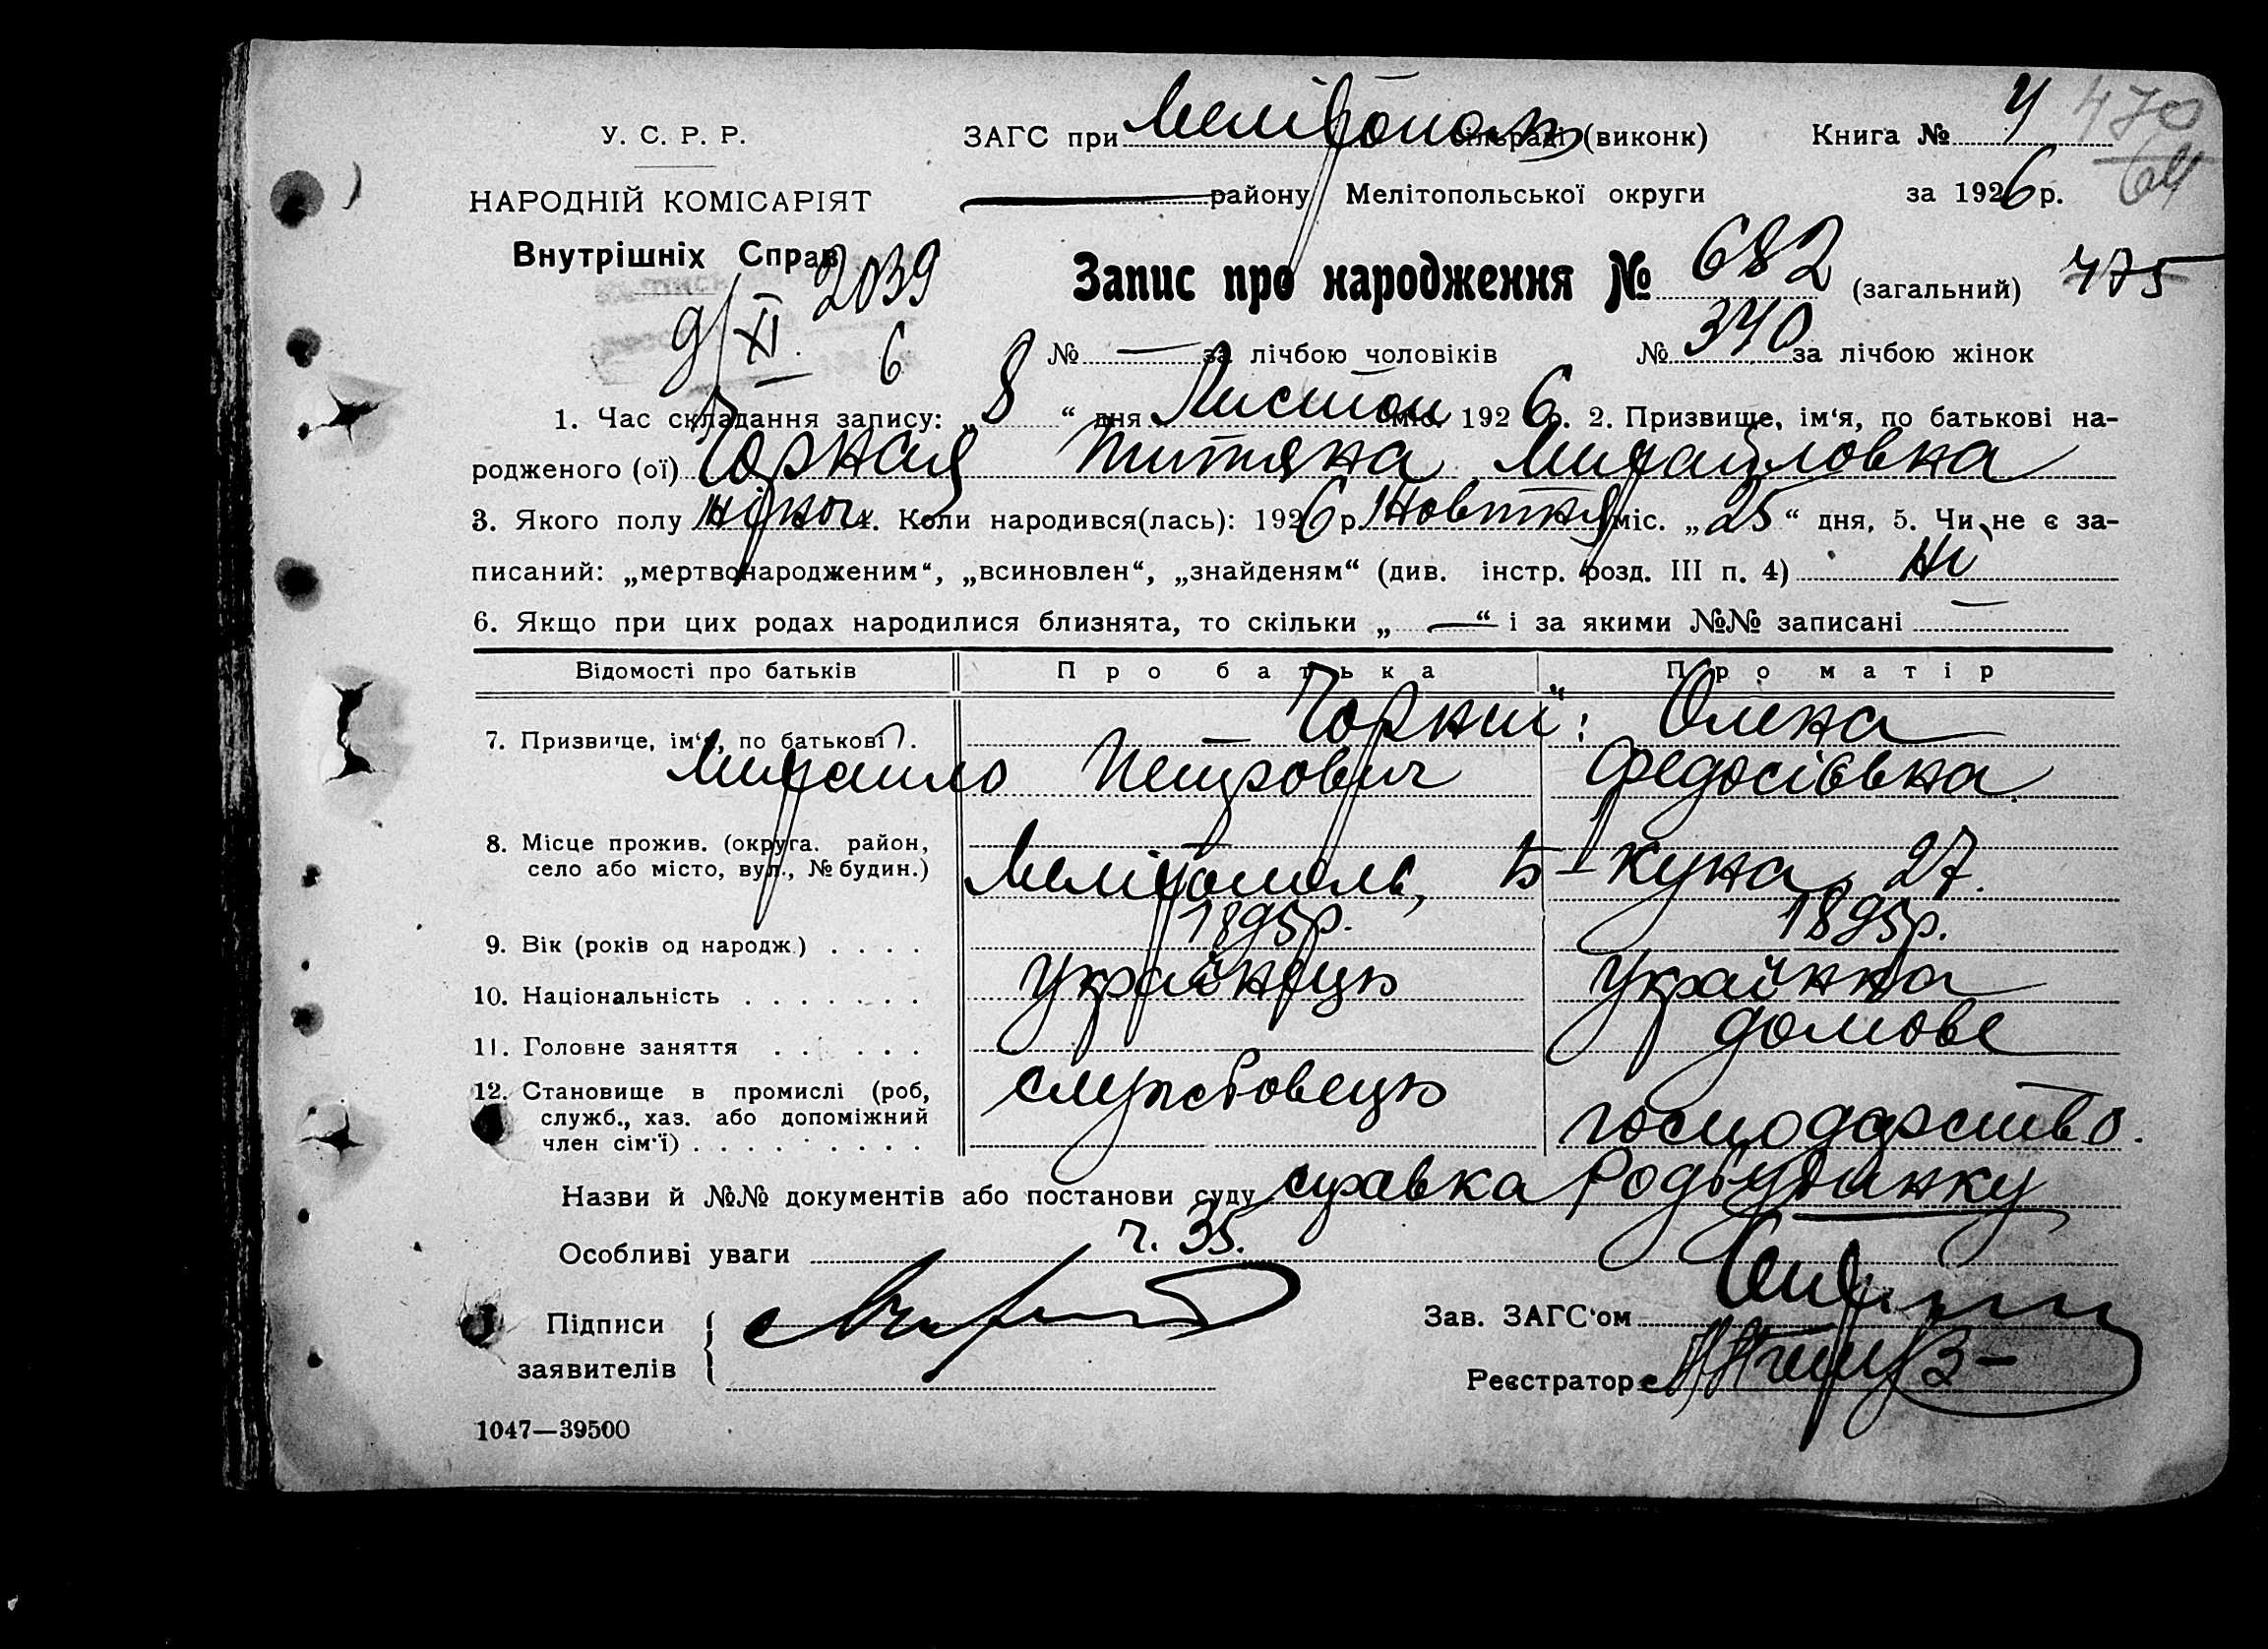 У. С. Р. Р.
НАРОДНІЙ КОМІСАРІЯТ
Внутрішніх Справ
2039
9/XI. 6
ЗАГС при Мелітополь сільраді (виконк)
Книга № 4
470
64
району Мелітопольської округи
за 1926 р.
Запис про народження № 682 (загальний) 475
№ — за лічбою чоловіків № 340 за лічбою жінок
1. Час складання запису: „8“ дня Листоп міс. 1926 р. 2. Призвище, ім‘я, по батькові на-
родженого (ої) Чорная Титяна Михайловка
3. Якого полу жіноч 4. Коли народився(лась): 1926 р. Жовтня міс. „25“ дня, 5. Чи не є за-
писаний: „мертвонародженим“, „всиновлен“, „знайденям“ (див. інстр. розд. III п. 4) Ні
6. Якщо при цих родах народилися близнята, то скільки „ — “ і за якими №№ записані —
Відомості про батьків Про батька Про матір
7. Призвище, ім‘я, по батькові . Чорний: Олена
Михаило Петрович Федосіївка
8. Місце прожив. (округа. район,
село або місто, вул., № будин.) Мелітополь, Б-Куна 27.
9. Вік (років од народж.) . . . . 1895р. 1895р.
10. Національність . . . . . . . Українець Українка
11. Головне заняття . . . . . . домове
12. Становище в промислі (роб, службовець
служб., хаз. або допоміжний
член сім‘ї) . . . . . . . . . господарство.
Назви й №№ документів або постанови суду справка Родбудинку
ч. 35.
Особливі уваги
Підписи
заявителів
Зав. ЗАГС‘ом
Реєстратор
1047—39500